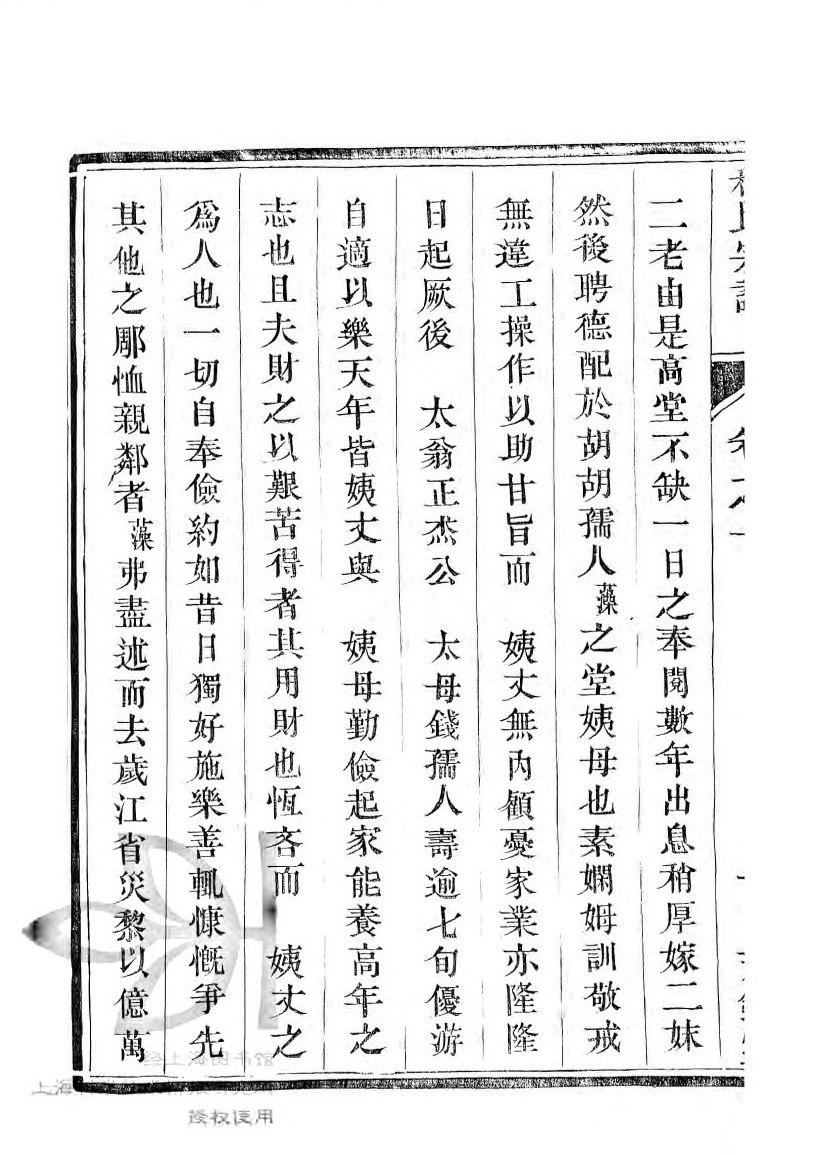 二老由是高堂不缺一日之奉閱數年出息稍厚嫁二妹
然後聘德配於胡胡孺人藻之堂姨母也素嫻姆訓敬戒
無違工操作以助甘旨而　姨丈無內顧憂家業亦隆隆
日起厥後　太翁正杰公　太母錢孺人壽逾七旬優游
自適以樂天年皆姨丈與　姨母勤儉起家能養高年之
志也且夫財之以艱苦得者其用財也恆吝而　姨丈之
為人也一切自奉儉約如昔日獨好施樂善輒慷慨爭先
其他之郮恤親鄰者藻弗盡述而去歲江省災黎以億萬
上海图书馆
授权使用